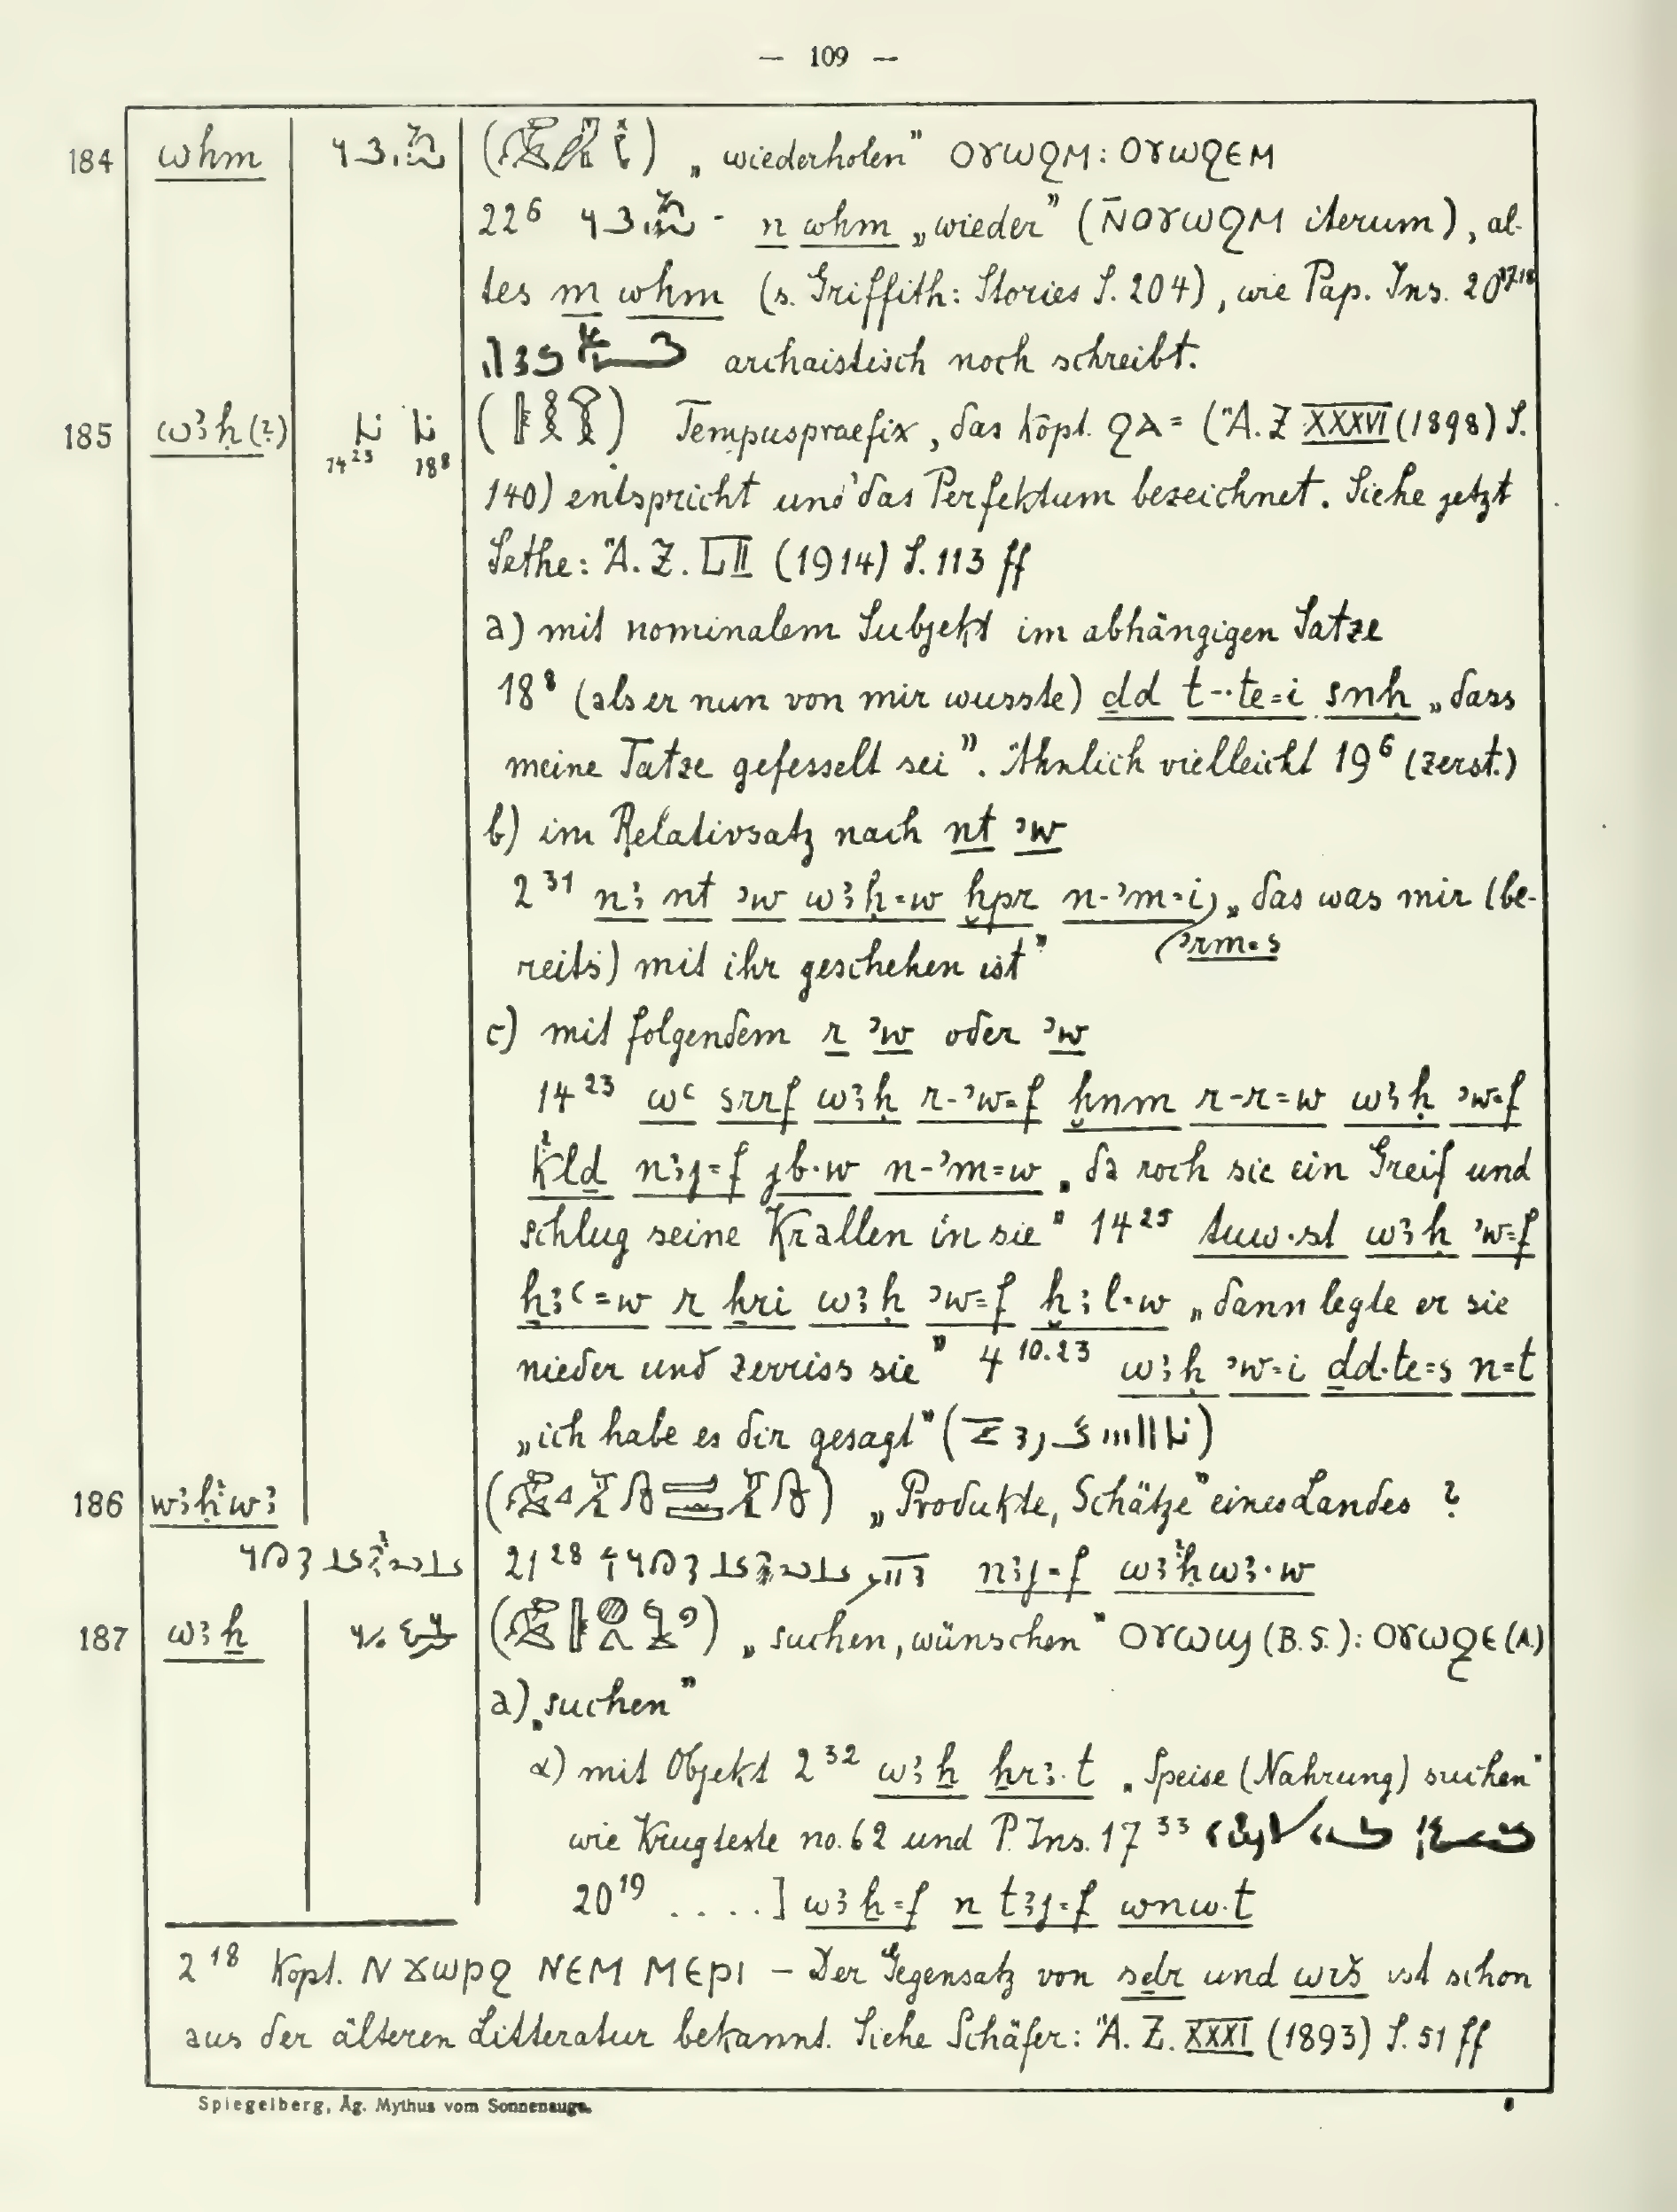 — 109 —
184 whm „wiederholen” ⲟⲩⲱϩⲙ: ⲟⲩⲱϩⲉⲙ
22⁶ - n whm „wieder” (ⲛ̄ⲟⲩⲱϩⲙ iterum), al-
tes m whm (s. Griffith: Stories S. 204), wie Pap. Ins. 20¹⁷·¹⁸
archaistisch noch schreibt.
185 wꜣḥ(?) 14²³ 18⁸ Tempuspraefix, das kopt. ϩⲁ= (Ä.Z XXXVI (1898) S.
140) entspricht und das Perfektum bezeichnet. Siehe jetzt
Sethe: Ä.Z. LII (1914) S. 113 ff
a) mit nominalem Subjekt im abhängigen Satze
18⁸ (als er nun von mir wusste) ḏd t-·te=i snḥ „dass
meine Tatze gefesselt sei”. Ähnlich vielleicht 19⁶ (zerst.)
b) im Relativsatz nach nt ꜥw
2³¹ nꜣ nt ʾw wꜣḥ=w ḫpr n-ʾm=i „das was mir (be-
ʾrm=s
reits) mit ihr geschehen ist”
c) mit folgendem r ʾw oder ʾw
14²³ wꜥ srrf wꜣḥ r-ʾw=f ḫnm r-r=w wꜣḥ ʾw=f
kld̲ nꜣj=f jb·w n-ʾm=w „da roch sie ein Greif und
schlug seine Krallen in sie” 14²⁵ wꜣḥ ʾw=f
ẖꜣꜥ=w r ẖri wꜣḥ ʾw=f ḫꜣl=w „dann legte er sie
nieder und zerriss sie” 4¹⁰·²³ wꜣḥ ʾw=i ḏd·te=s n=t
„ich habe es dir gesagt” ( )
186 wꜣḥwꜣ „Produkte, Schätze” eines Landes ?
21²⁸ nꜣj=f wꜣḥwꜣ·w
187 wꜣẖ „suchen, wünschen” ⲟⲩⲱϣ (B.S.): ⲟⲩⲱϩⲉ (A.)
a) „suchen”
α) mit Objekt 2³² wꜣẖ ḥrꜣ·t „Speise (Nahrung) suchen”
wie Krugtexte no. 62 und P. Ins. 17³³
20¹⁹ ....] wꜣẖ=f n tꜣj=f wnw·t
2¹⁸ Kopt. ⲛϫⲱⲣϩ ⲛⲉⲙ ⲙⲉⲣⲓ – Der Gegensatz von sḏr und wrš ist schon
aus der älteren Litteratur bekannt. Siehe Schäfer: Ä.Z. XXXI (1893) S. 51 ff
Spiegelberg, Äg. Mythus vom Sonnenauge.